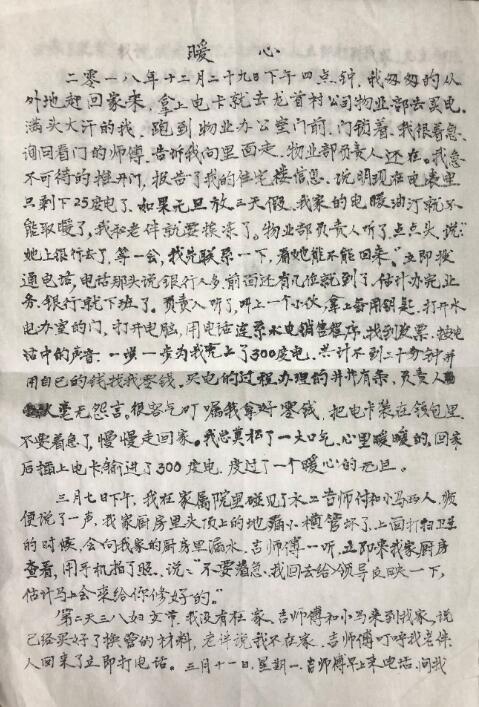 暖 心
二零一八年十二月二十九日下午四点钟，我匆匆的从
外地赶回家来，拿上电卡就去龙首村公司物业部去买电.
满头大汗的我，跑到物业办公室门前，门锁着，我很着急.
询问看门的师傅，告诉我向里面走，物业部负责人还在。我急
不可待的推开门，报告了我的住宅楼信息，说明现在电表里
只剩下25度电了，如果元旦放三天假，我家的电暖油汀就不
能取暖了，我和老伴就要挨冻了。物业部负责人听了点点头，说:"
她上银行去了，等一会，我先联系一下，看她能不能回来。"立即拨
通电话，电话那头说银行人多，前面还有几位就到了，估计办完业
务，银行就下班了。负责人听了，叫上一个小伙，拿上备用钥匙，打开水
电办室的门，打开电脑，用电话连系水电销售程序，找到发票，按电
话中的声音，一步一步为我充上了300度电，共计不到二十分钟并
用自已的钱找我零钱。买电的过程办理的井井有条，负责人
毫无怨言。很客气叮嘱我拿好零钱，把电卡装在钱包里
不要着急了，慢慢走回家。我总算松了一大口气，心里暖暖的，回来
后插上电卡输进了300度电，度过了一个暖心的元旦。
三月七日下午，我在家属院里碰见了水工吉师付和小马两人，顺
便说了一声，我家厨房里头顶上的地漏小横管坏了，上面打扫卫生
的时候，会向我家的厨房里漏水，吉师傅一听，立即来我家厨房
查看，用手机拍了照，说:"不要着急，我回去给领导反映一下，
估计马上会来给你修好的。"
第二天三八妇女节，我没有在家，吉师傅和小马来到我家，说
已经买好了换管的材料，老伴说我不在家，吉师傅叮咛我老伴，
人回来了立即打电话。三月十一日，星期一，吉师傅早上来电话，问我